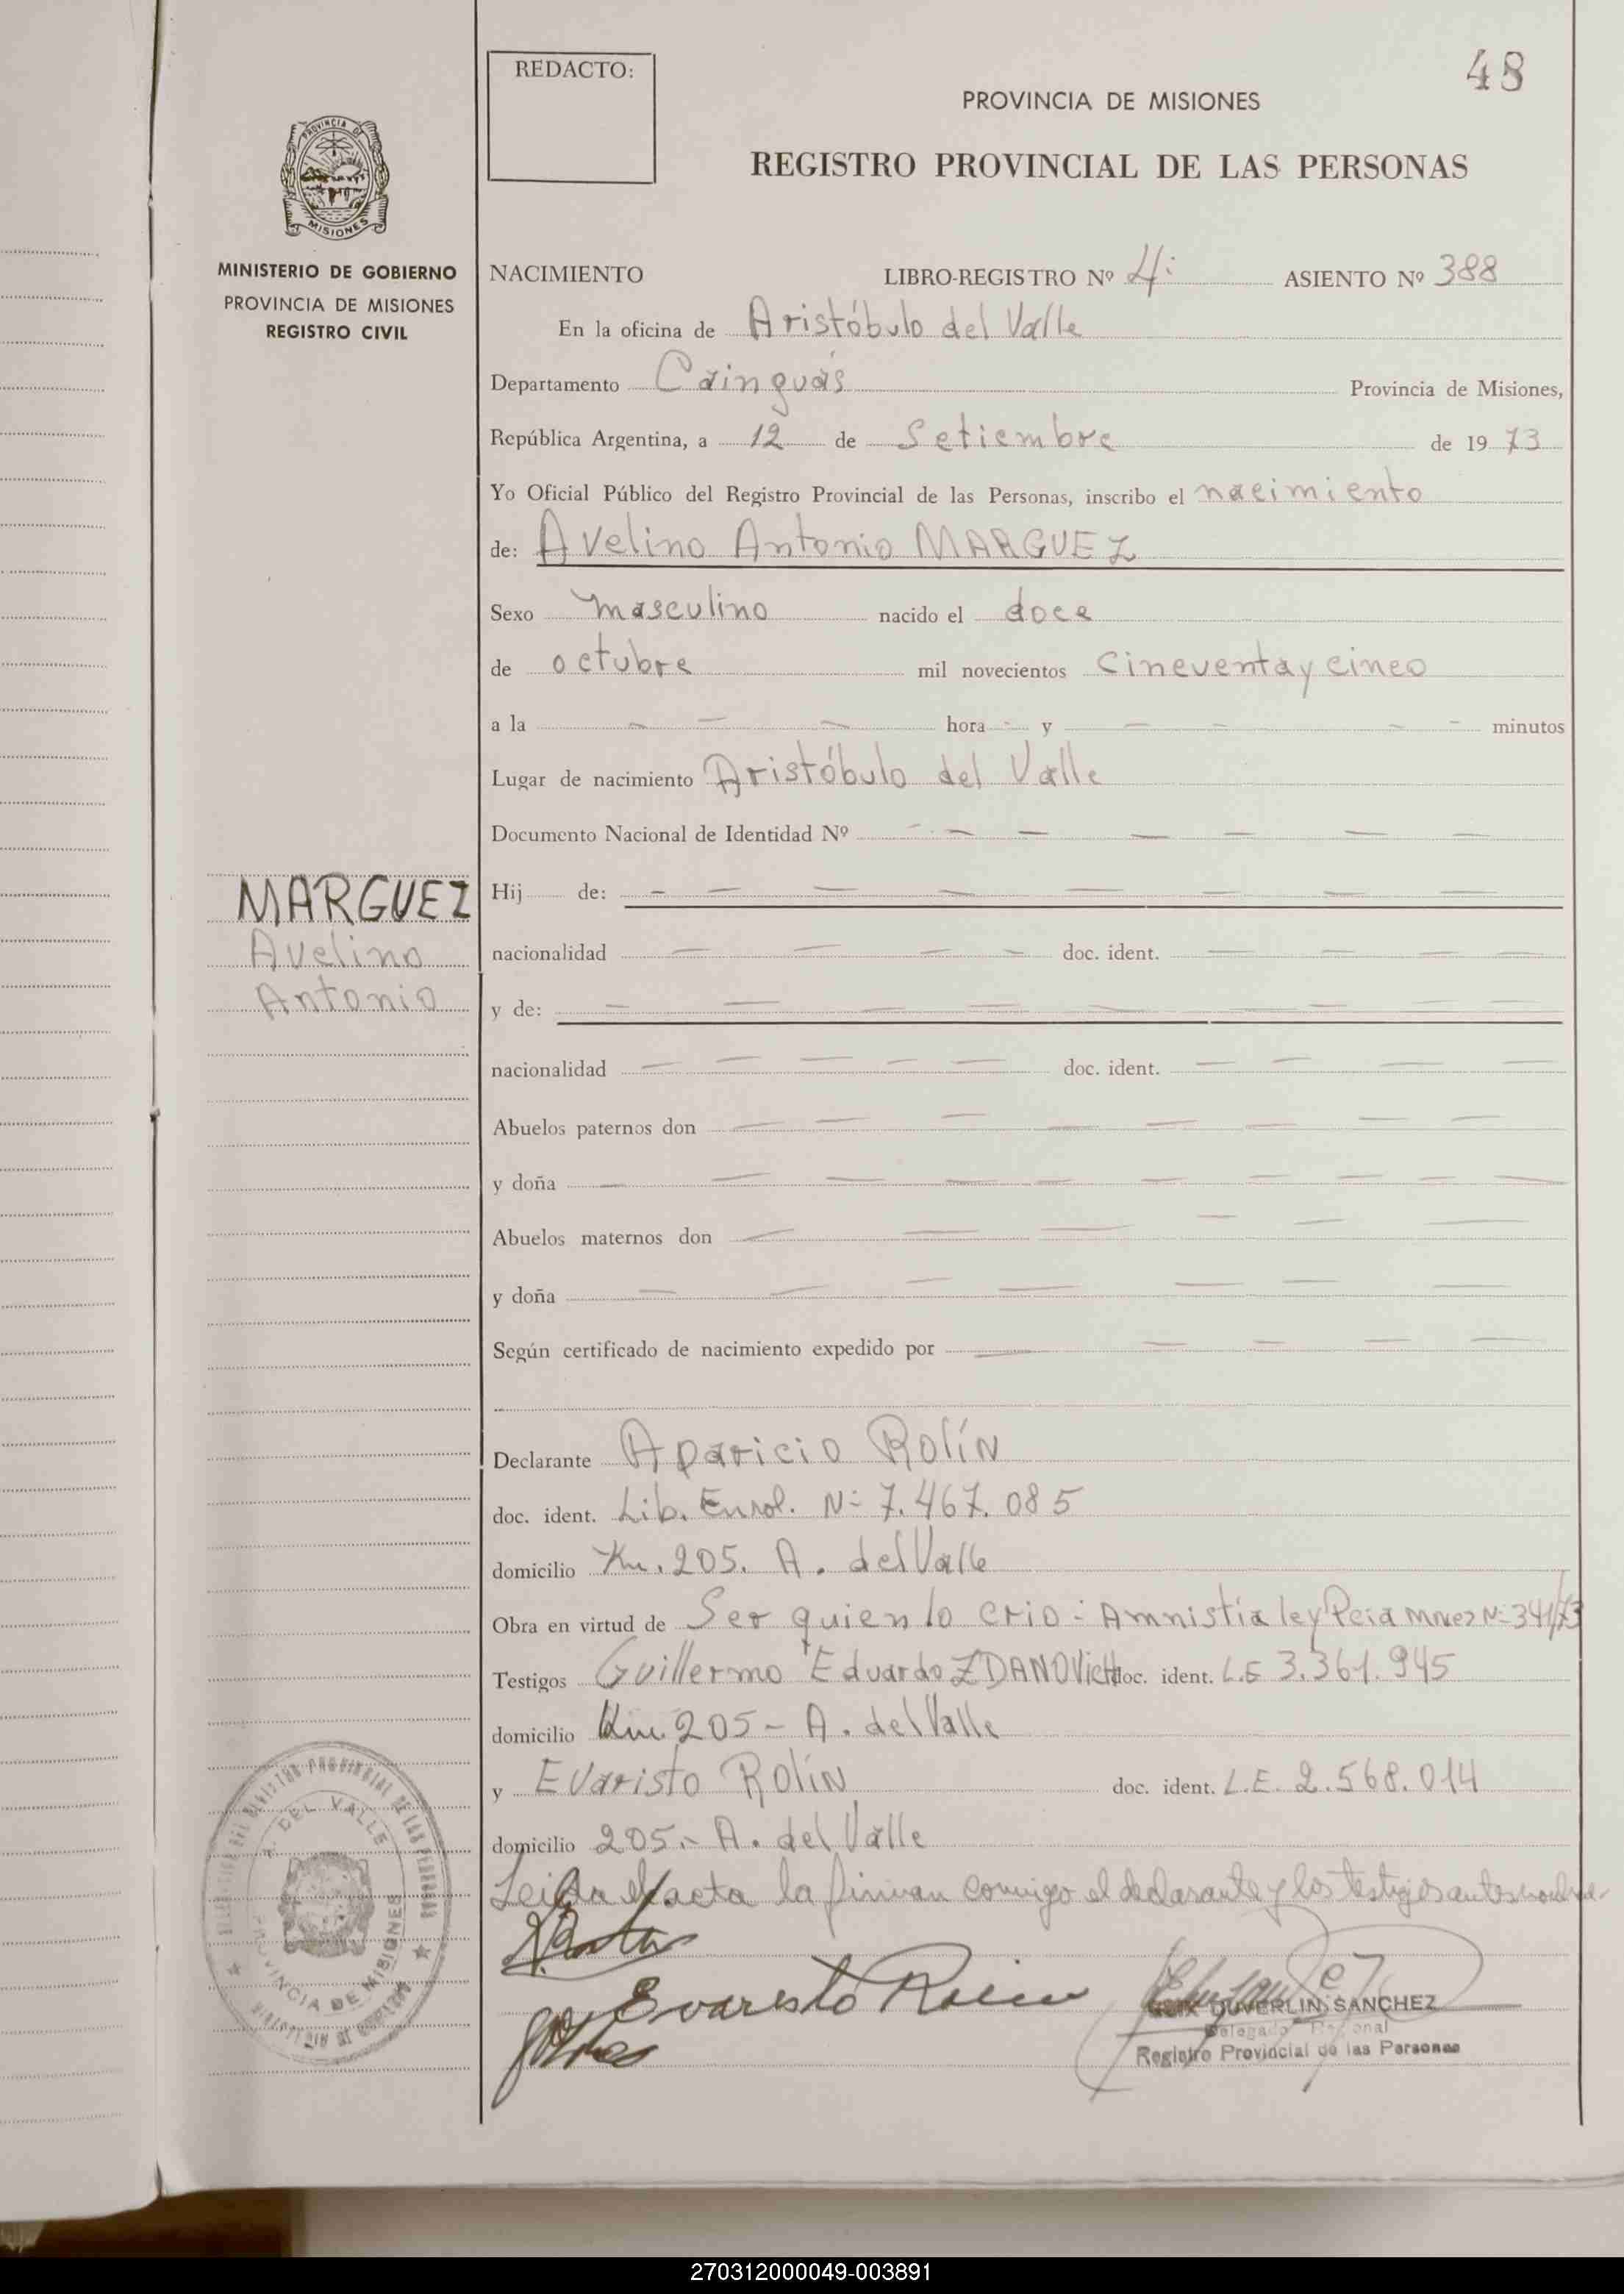 48
REDACTO:
PROVINCIA DE MISIONES
REGISTRO PROVINCIAL DE LAS PERSONAS
PROVINCIA DE
MISIONES
MINISTERIO DE GOBIERNO
PROVINCIA DE MISIONES
REGISTRO CIVIL
NACIMIENTO LIBRO-REGISTRO Nº 4i ASIENTO Nº 388
En la oficina de Aristóbulo del Valle
Departamento Cainguás Provincia de Misiones,
República Argentina, a 12 de Setiembre de 1973
Yo Oficial Público del Registro Provincial de las Personas, inscribo el nacimiento
de: Avelino Antonio MARGUEZ
Sexo masculino nacido el doce
de octubre mil novecientos cincuenta y cinco
a la — — — hora - y — — — - minutos
Lugar de nacimiento Aristóbulo del Valle
Documento Nacional de Identidad Nº — — — — — — —
MARGUEZ
Avelino
Antonio
Hij de: — — — — — — — —
nacionalidad — — — — doc. ident. — — — —
y de: — — — — — — — —
nacionalidad — — — — — doc. ident. — — — —
Abuelos paternos don — — — — — — — —
y doña — — — — — — — — —
Abuelos maternos don — — — — — —
y doña — — — — — — —
Según certificado de nacimiento expedido por — — — — —
Declarante Aparicio Rolín
doc. ident. Lib. Enrol. Nº 7.467.085
domicilio Km. 205. A. del Valle
Obra en virtud de Ser quien lo crio - Amnistía ley Pcia Mnes Nº 341/73
Testigos Guillermo Eduardo ZDANOVICH doc. ident. L.E 3.361.945
domicilio Km 205 - A. del Valle
y Evaristo Rolín doc. ident. L.E. 2.568.014
domicilio 205.- A. del Valle
Leida el acta la firman conmigo el declarante y los testigos antes
Evaristo Rolin
DUVERLIN SANCHEZ
Delegado Regional
Registro Provincial de las Personas
REGISTRO PROVINCIAL DE LAS PERSONAS
A. DEL VALLE
PROVINCIA DE MISIONES
270312000049-003891